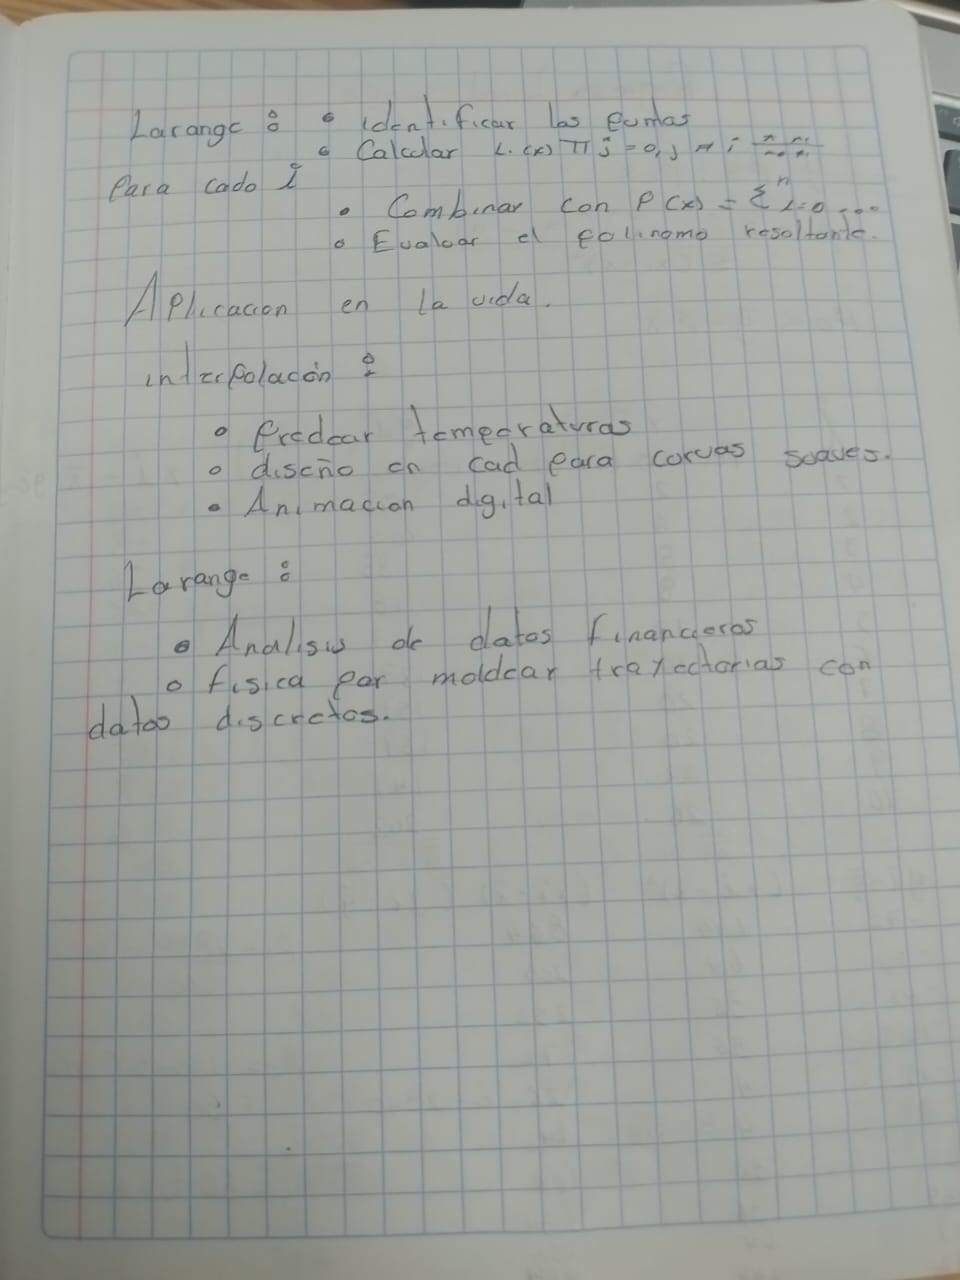 Larange : • identificar los puntos
• Calcular L.(x) π j=0, j≠i
Para cado i
• Combinar con P(x) = Σ^n i=0 ...
• Evaluar el polinomo resultante.
Aplicacion en la vida.
interpolación :
• Predear temperaturas
• diseño en cad para corvas suaves.
• Animacion digital
Larange :
• Analisis de datos financieros
• fisica par moldear trayectorias con
datos discretos.